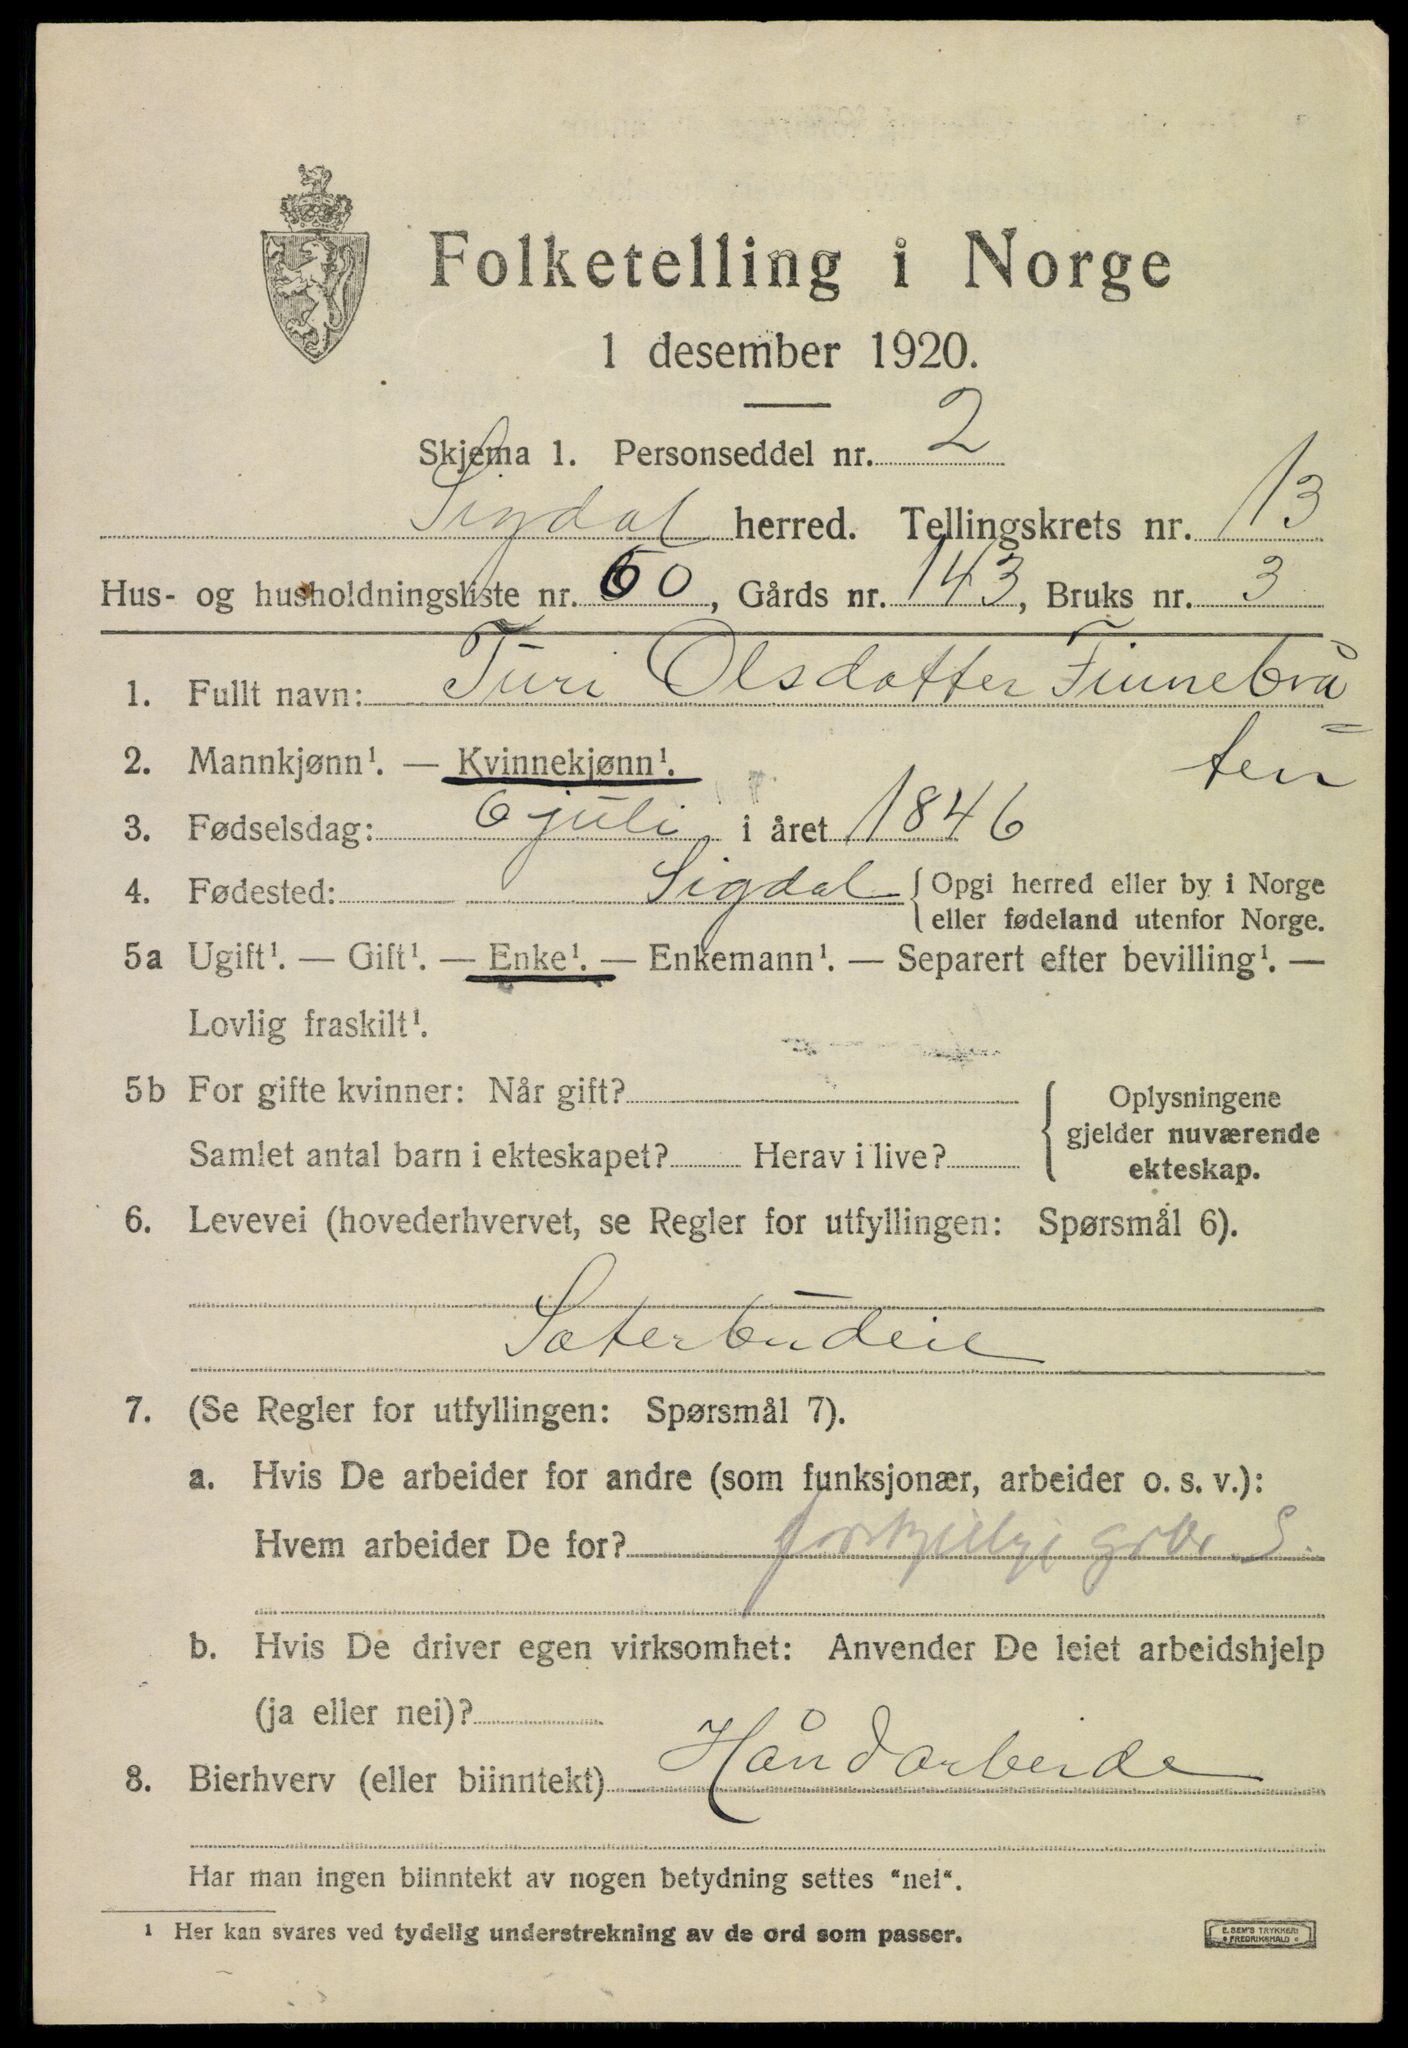 Folketelling i Norge
1 desember 1920.
Skjema 1. Personseddel nr. 2
Sigdal herred. Tellingskrets nr. 13
Hus- og husholdningsliste nr. 60, Gårds nr. 143, Bruks nr. 3
1. Fullt navn: Turi Olsdatter Finnebrå
ten
2. Mannkjønn¹. — Kvinnekjønn¹.
3. Fødselsdag: 6 juli i året 1846
4. Fødested: Sigdal { Opgi herred eller by i Norge
eller fødeland utenfor Norge.
5a Ugift¹. — Gift¹. — Enke¹. — Enkemann¹. — Separert efter bevilling¹. —
Lovlig fraskilt¹.
5b For gifte kvinner: Når gift?
Samlet antal barn i ekteskapet? Herav i live?
Oplysningene
gjelder nuværende
ekteskap.
6. Levevei (hovederhvervet, se Regler for utfyllingen: Spørsmål 6).
Sæterbudeie
7. (Se Regler for utfyllingen: Spørsmål 7).
a. Hvis De arbeider for andre (som funksjonær, arbeider o. s. v.):
Hvem arbeider De for? forskjellige S.
b. Hvis De driver egen virksomhet: Anvender De leiet arbeidshjelp
(ja eller nei)?
8. Bierhverv (eller biinntekt) Håndarbeide
Har man ingen biinntekt av nogen betydning settes "nei".
¹ Her kan svares ved tydelig understrekning av de ord som passer.
E. SEM'S TRYKKERI
FREDRIKSHALD